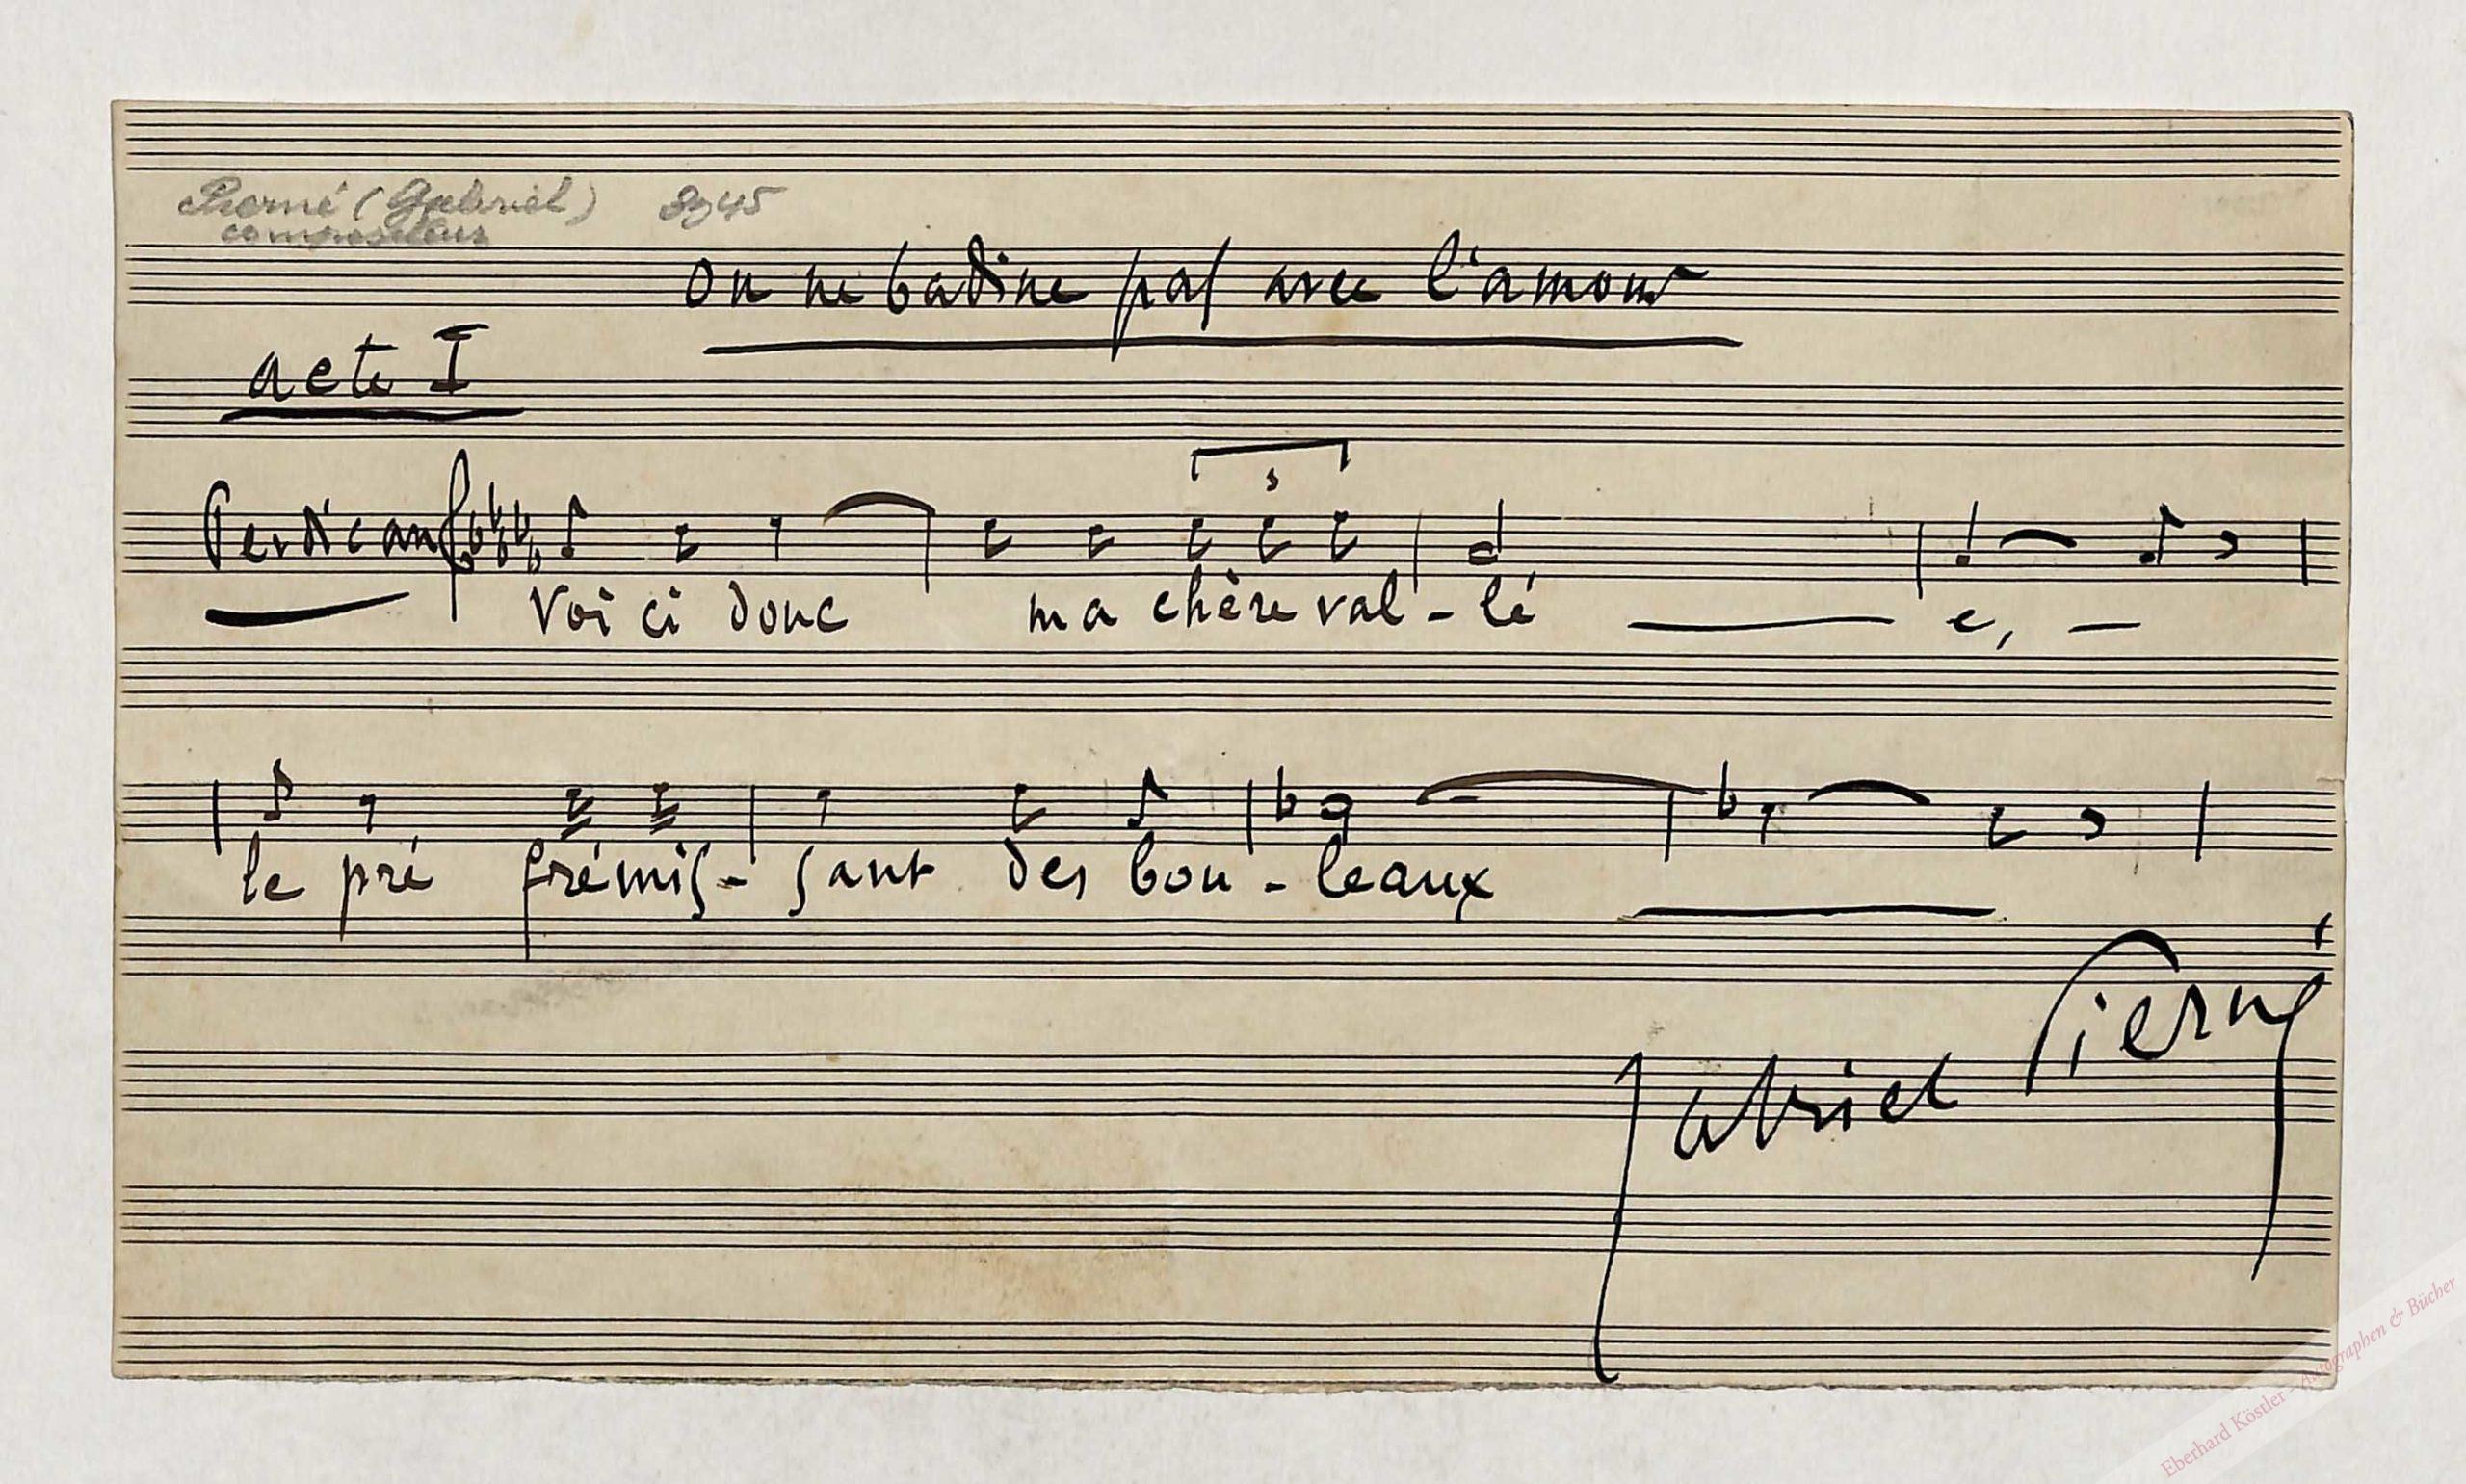 Pierné (Gabriel) 8945
compositeur
On ne badine pas avec l'amour
acte I
3
Perdican
Voi ci donc ma chère val - lé e,
le pré frémis - sant des bou - leaux
Gabriel Pierné
Eberhard Köstler - Autographen & Bücher